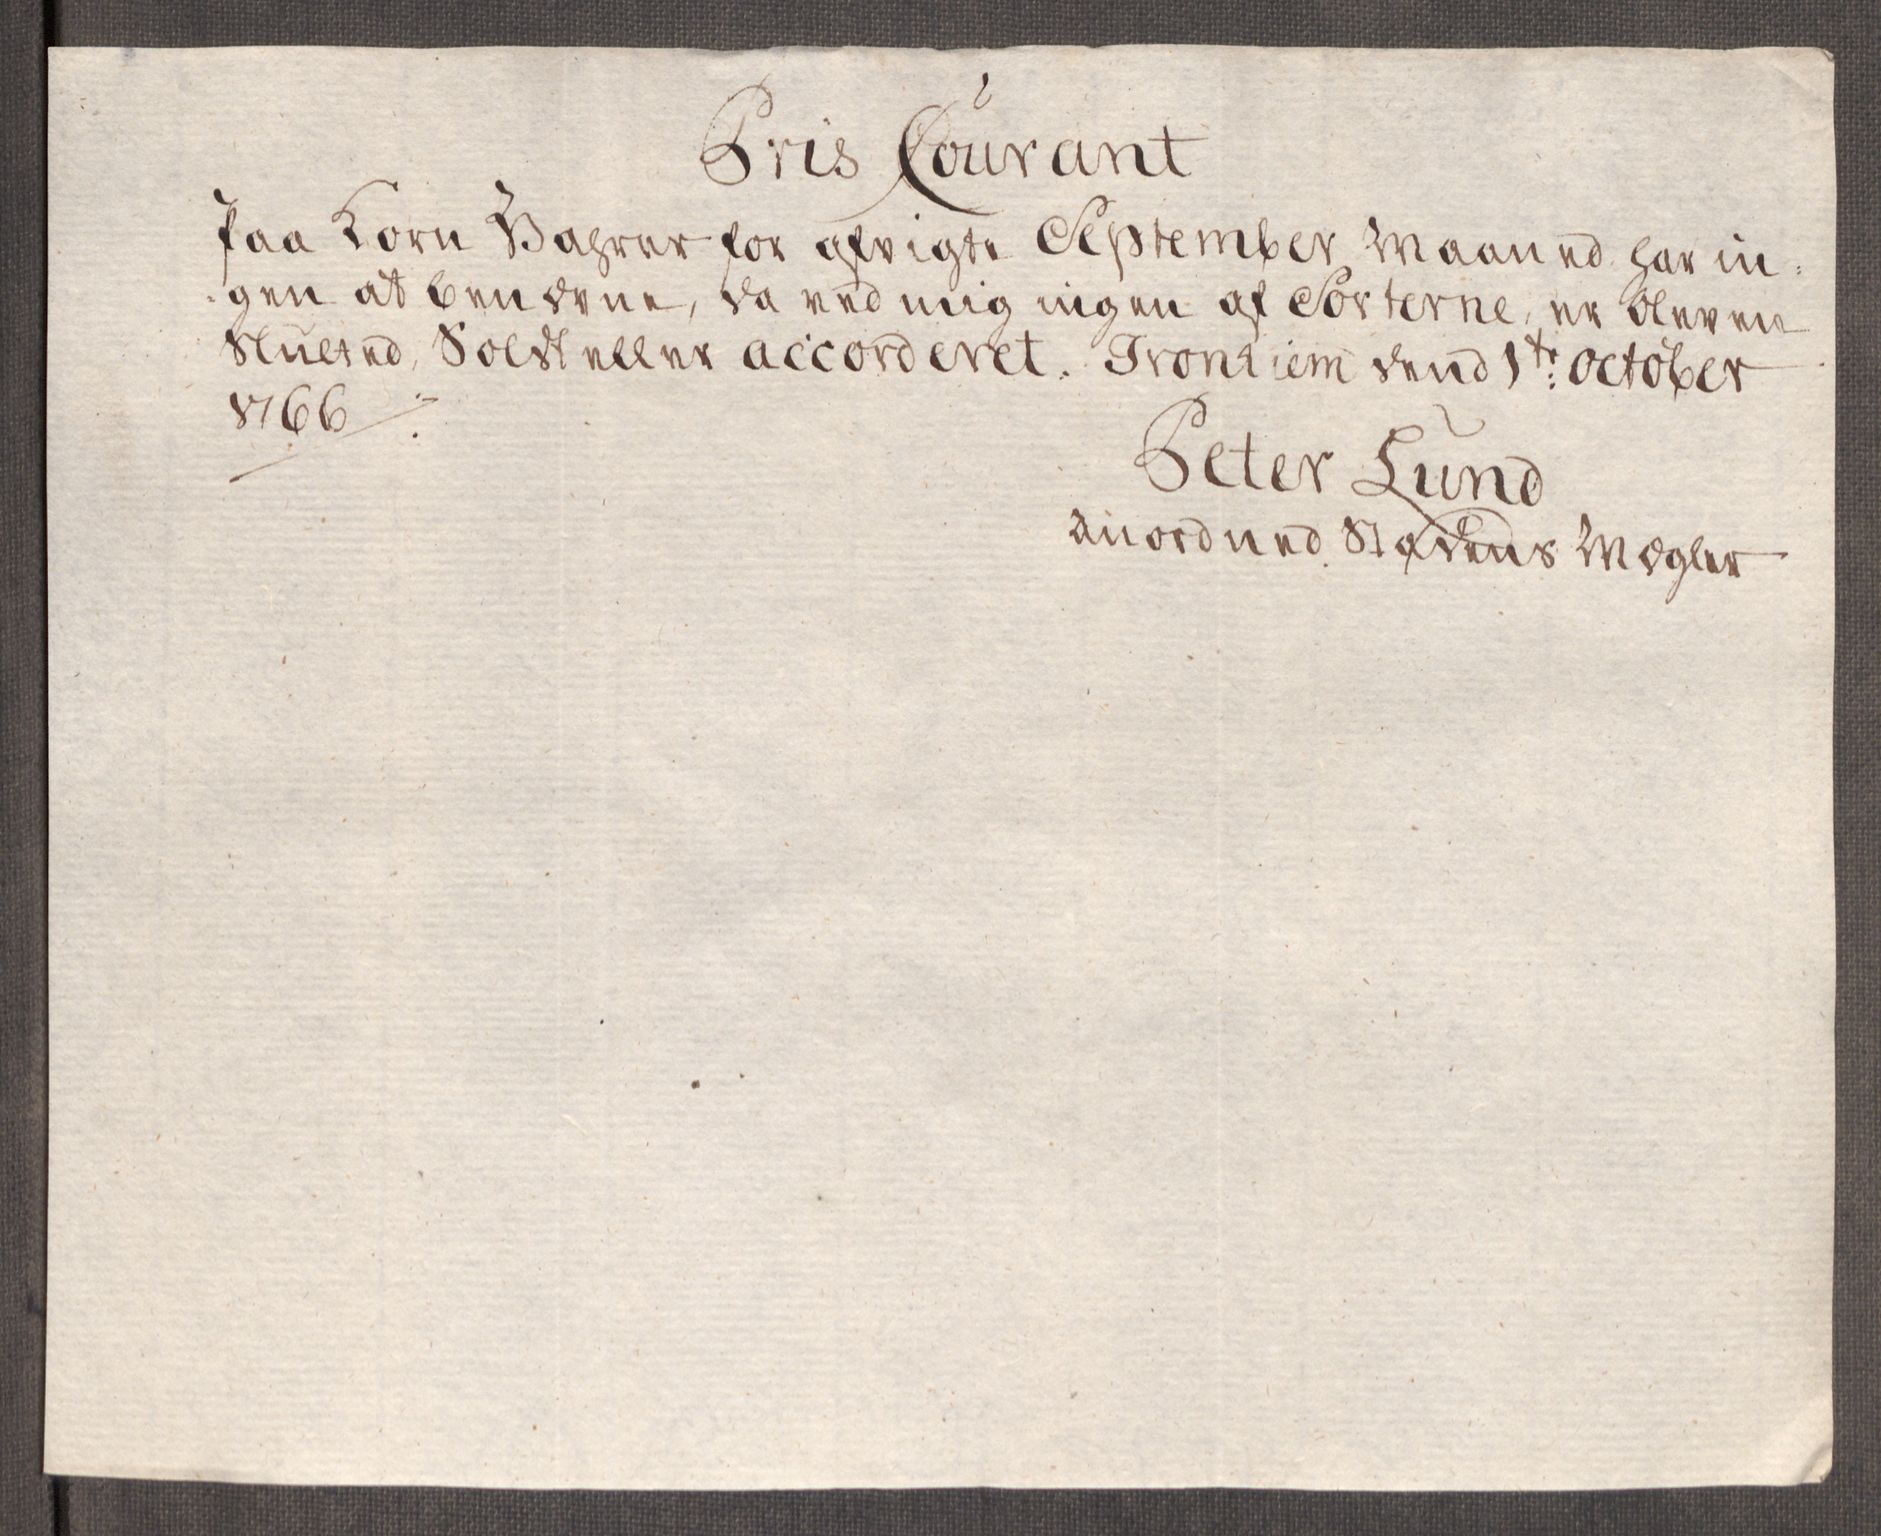 Pris Courant
Paa Korn Vahrer for afvigte September Maaned har in:
gen at benævne, da ved mig ingen af Sorterne, er bleven
Sluted, Soldt eller accorderet. Trondiem dend 1te: october
1766
Peter Lund
anordned Stadens Mægler